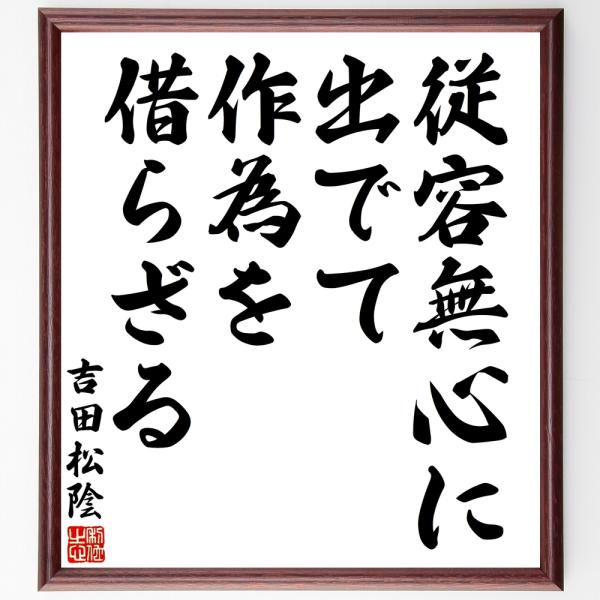 従容無心に
出でて
作為を
借らざる
吉田松陰